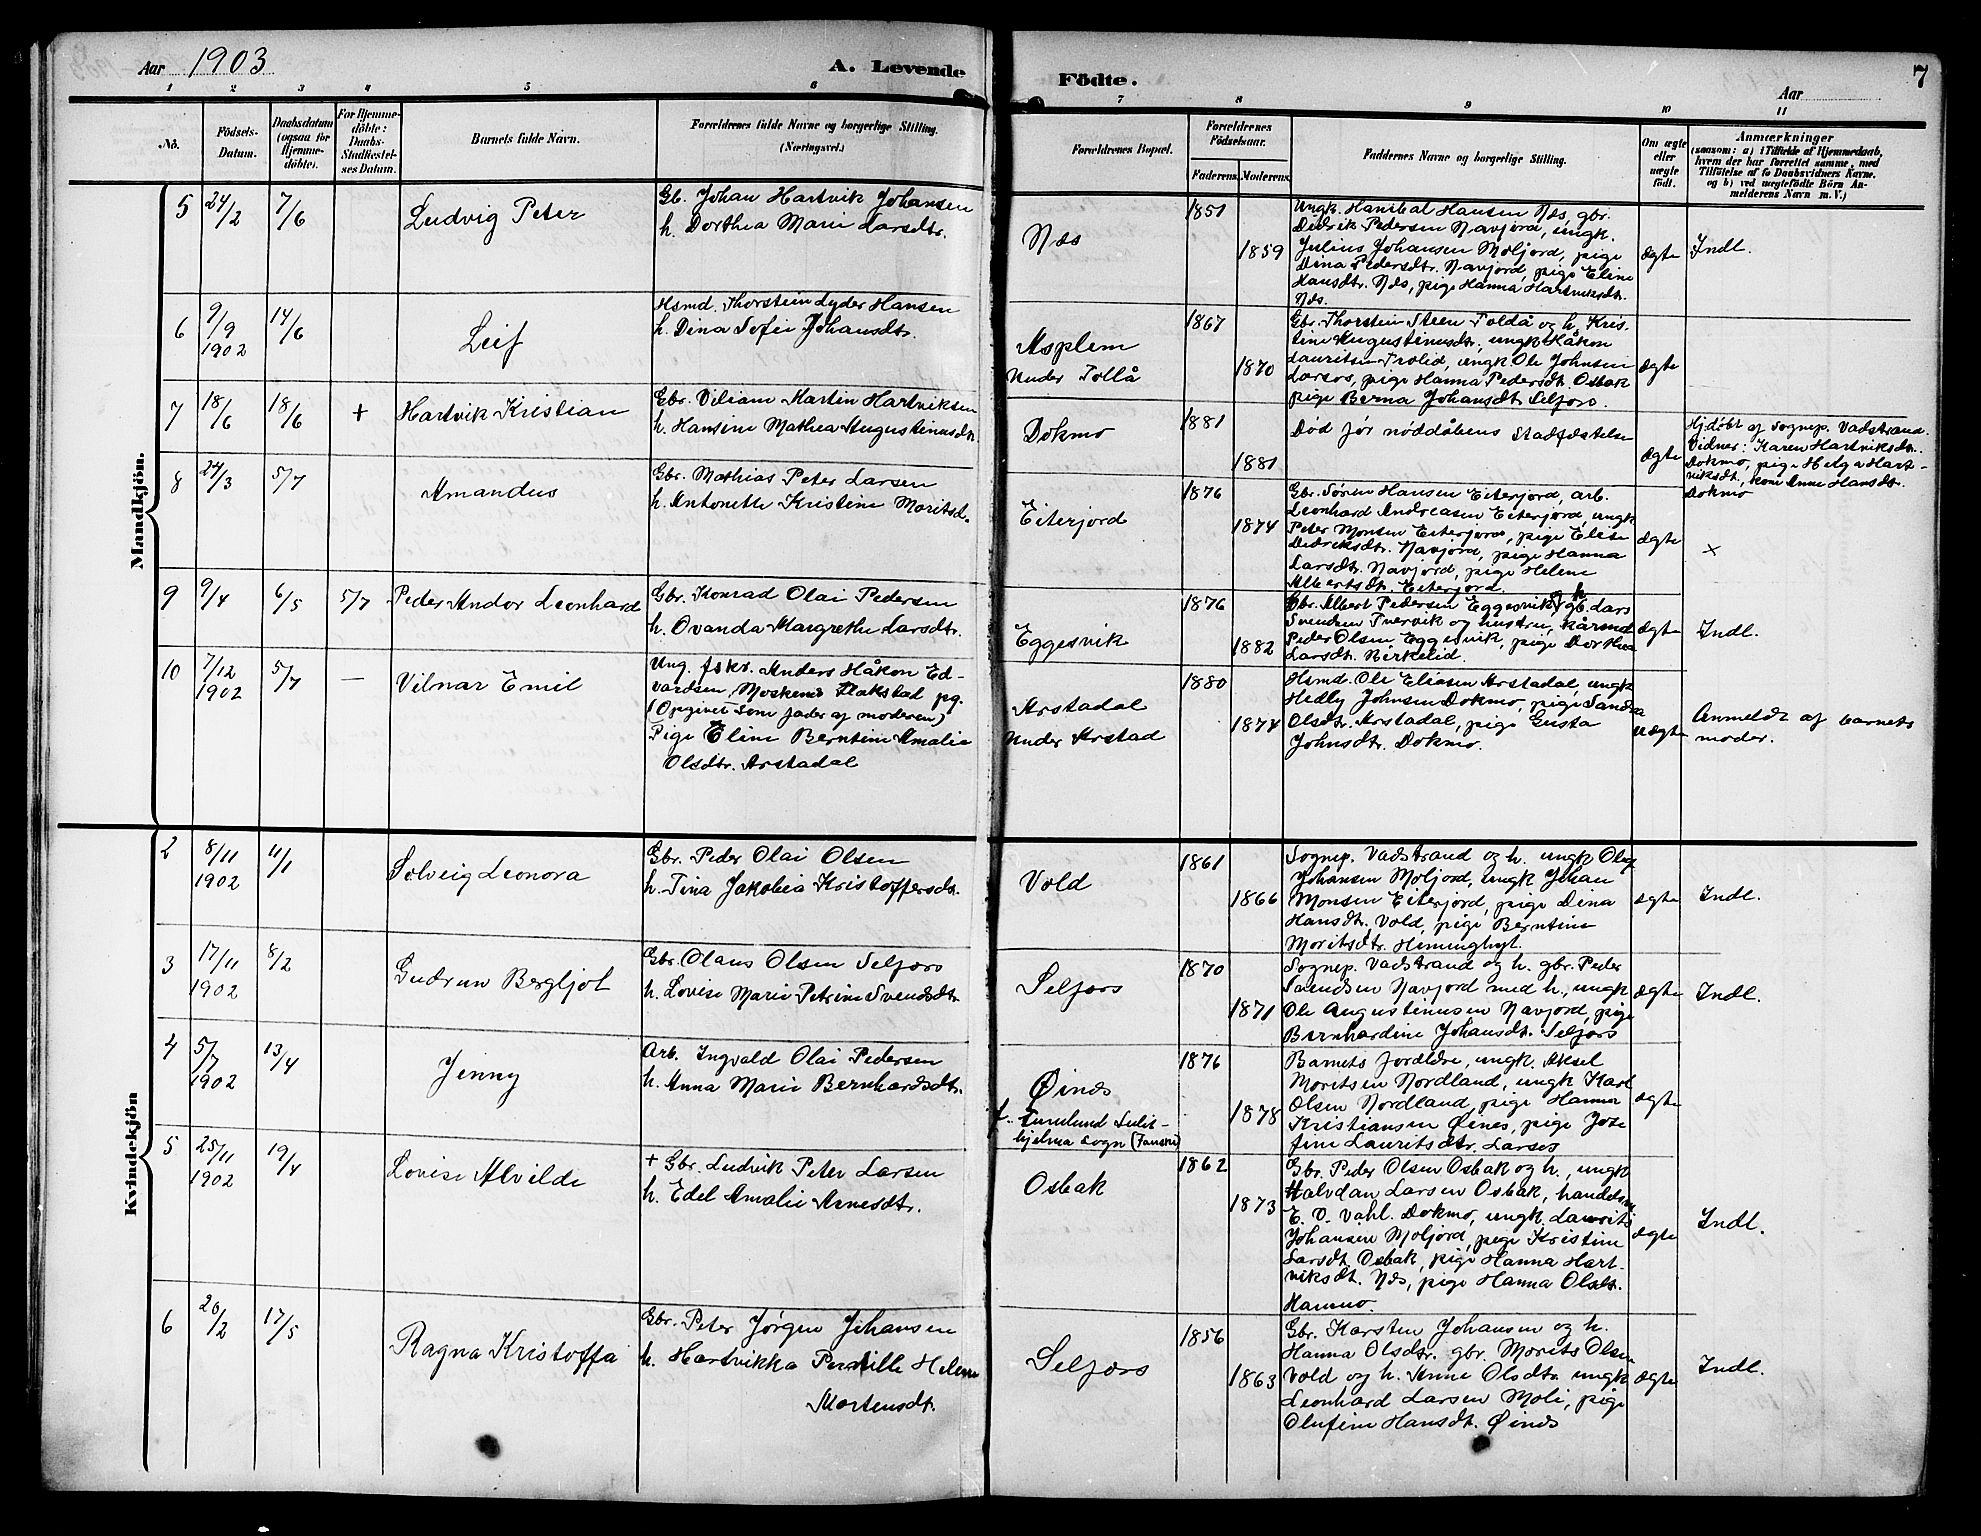 Aar 1903
A. Levende
Födte.
7
Aar
1 2 3 4 5 6 7 8 9 10 11
No.
Födsels-
Datum.
Daabsdatum
(ogsaa for
Hjemme-
döbte).
For Hjemme-
döbte:
Daabs-
Stadfæstel-
ses Datum.
Barnets fulde Navn.
Forældrenes fulde Navne og borgerlige Stilling.
(Næringsvei.)
Forældrenes Bopæl.
Forældrenes
Födselsaar.
Faderens. Moderens.
Faddernes Navne og borgerlige Stilling.
Om ægte
eller
uægte
födt.
Anmærkninger
(saasom: a) i Tilfælde af Hjemmedaab,
hvem der har forrettet samme, med
Tilföielse af to Daabsvidners Navne,
og b) ved uægtefödte Börn An-
melderens Navn m. V.)
Mandkjön.
5 24/2 7/6 Ludvig Peter
Gb. Johan Hartvik Johansen
h. Dorthea Marie Larsdtr.
Næs
1851
1859
Ungk. Hanibal Hansen Næs, gbr.
Didrik Pedersen Navjord, ungk.
Julius Johansen Moljord, pige
Dina Pedersdtr. Navjord, pige Eline
Hansdtr. Næs, pige Hanna Hartviksdtr.
Næs.
ægte
Indl.
6 9/9 1902 14/6 Leif
Hsmd. Thorstein Lyder Hansen
h. Dina Sofie Johansdtr.
Asplem
under Tollå
1867
1870
Gbr. Thorstein Steen Toldå og h. Kris-
tine Augustinusdtr., ungk Håkon
Lauritsen Trolid, ungk Ole Johnsen
Larsos, pige Hanna Pedersdt. Osbak
pige Berna Johansdtr. Selfors.
ægte
7 18/6 18/6 + Hartvik Kristian
Gbr. Viliam Martin Hartviksen
h. Hansine Mathea Augustinusdt.
Dokmo
1881
1881
Død før nøddåbens Stadfæstelse
ægte
Hj.døbt af Sognep. Vadstrand.
Vidner: Karen Hartviksdtr.
Dokmo, pige Helga Hart-
viksdt., kone Anne Hansdt.
Dokmo
8 24/3 5/7 Amandus
Gbr. Mathias Peter Larsen
h. Antonette Kristine Moritsd.
Eiterjord
1876
1874
Gbr. Søren Hansen Eiterjord, arb.
Leonhard Andreasen Eiterjord, ungk
Peter Monsen Eiterjord, pige Elise
Didriksdtr. Navjord, pige Hanna
Larsdtr. Navjord, pige Helene
Albertsdtr. Eiterjord.
ægte
x
9 9/4 6/5 5/7 Peder Andor Leonhard
Gbr. Konrad Olai Pedersen
h. Ovanda Margrethe Larsdtr.
Eggesvik
1876
1882
Gbr. Albert Pedersen Eggesvik og h gb. Lars
Svendsen Tvervik og hustru, kårmd
Peder Olsen Eggesvik, pige Dorthea
Larsdtr. Birkelid.
ægte
Indl.
10 7/12 1902 5/7 — Vilnar Emil
Ung. fskr. Anders Håkon Ed-
vardsen, Moskenes Flakstad pg.
(Opgivet som fader af moderen)
Pige Eline Berntine Amalie
Olsdtr. Arstadal
Arstadal
under Arstad
1880
1874
Hsmd. Ole Eliasen Arstadal, ungk
Hedly Johnsen Dokmo, pige Sandra
Olsdtr. Arstadal, pige Gusta
Johnsdtr. Dokmo.
uægte
Anmeldt af barnets
moder.
Kvindekjön
2 8/11 1902 11/1 Solveig Leonora
Gbr. Peder Olai Olsen
h. Tina Jakobia Kristoffersdtr.
Vold
1861
1866
Sognep. Vadstrand og h. ungk Oluf
Johansen Moljord, ungk Johan
Monsen Eiterjord, pige Dina
Hansdtr. Vold, pige Berntine
Moritsdtr. Heminghyt.
ægte
Indl.
3 17/11 1902 8/2 Gudrun Bergljot
Gbr. Olaus Olsen Selfors
h. Lovise Marie Petrine Svendsdtr.
Selfors
1870
1871
Sognep. Vadstrand og h. gbr. Peder
Svendsen Navjord med h., ungk
Ole Augustinusen Navjord, pige
Bernhardine Johansdt. Selfors
ægte
Indl.
4 5/7 1902 13/4 Jenny
Arb. Ingvald Olai Pedersen
h. Anna Marie Bernhardsdtr.
Øines
f. Furulund Sulit-
hjelma sogn (Fauske)
1876
1878
Barnets forældre, ungk. Aksel
Moritsen Nordland, ungk Karl
Olsen Nordland, pige Hanna
Kristiansen Øines, pige Jose
fine Lauritsdtr. Larsos
ægte
5 25/11 1902 19/4 Lovise Alvilde
+ Gbr. Ludvik Peter Larsen
h. Edel Amalie Arnesdtr.
Osbak
1862
1873
Gbr. Peder Olsen Osbak og h., ungk
Halvdan Larsen Osbak, handelsm
E. V. Vahl. Dokmo, ungk. Laurits
Johansen Moljord, pige Kristine
Larsdt. Osbak, pige Hanna Hart-
viksdt. Næs, pige Hanna Olsdt.
Hammo.
ægte
Indl.
6 20/2 17/5 Ragna Kristoffa
Gbr. Peter Jørgen Johansen
h. Hartvikka Pernille Helene
Mortensdt.
Selfors
1856
1863
Gbr. Karsten Johansen og h.
Hanna Olsdtr. gbr. Morits Olsen
Vold og h. Anne Olsdtr. ungk
Leonhard Larsen Moli, pige
Olufine Hansdt. Øines
ægte
Indl.